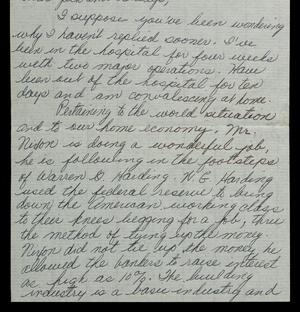 I suppose you've been wondering
why I haven't replied sooner. I've
been in the hospital for four weeks
with two major operations. Have
been out of the hospital for ten
days and am convalescing at home.
Pertaining to the world situation
and to our home economy. Mr.
Nixon is doing a wonderful job,
he is following in the footsteps
of Warren G. Harding. W. G. Harding
used the federal reserve to bring
down the American working class
to their knees begging for a job, thru
the method of tying up the money
Nixon did not tie up the money he
allowed the bankers to raise interest
as high as 10%. The building
industry is a basic industry and